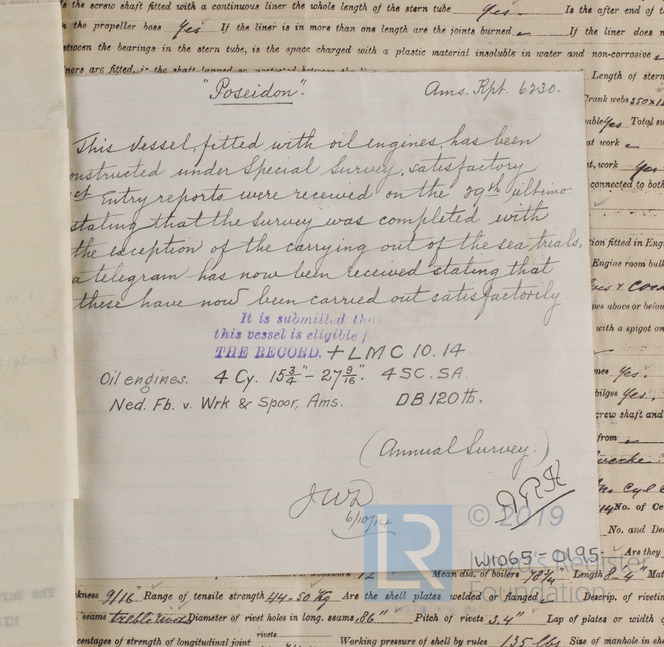 the screw shaft fitted with a continuous liner the whole length of the stern tube Yes Is the after end of
the propeller boss Yes If the liner is in more than one length are the joints burned If the liner does
between the bearings in the stern tube, is the space charged with a plastic material insoluble in water and non-corrosive
Length of stern
"Poseidon". Ams. Rpt. 6230.
Crank webs
Yes Total
This vessel, fitted with oil engines, has been
at work
constructed under Special Survey, satisfactory
, work
1st Entry reports were received on the 29th ultimo
connected to both
stating that the survey was completed with
the exception of the carrying out of the sea trials,
tion fitted in Eng
a telegram has now been received stating that
Engine room bulk
these have now been carried out satisfactorily
es above or below
It is submitted tha
this vessel is eligible f
with a spigot an
THE RECORD. + LMC 10.14
Oil engines. 4 Cy. 15 3/4" - 27 9/16" 4 SC. SA.
Yes.
Ned. Fb. v. Wrk & Spoor, Ams. DB 120 lb.
bilges Yes.
crew shaft and
from
(Annual Survey.)
JWD
6/10/14
No. of Ce
© 2019
LR
No. and De
W1065-0195
Are they
Register
Foundation
Mean dia. of boilers Length Mat
kness 9/16" Range of tensile strength 44-50 Kg Are the shell plates welded or flanged Descrip. of riveting
seams treble Diameter of rivet holes in long. seams .86" Pitch of rivets 3.4" Lap of plates or width
rivets
centages of strength of longitudinal joint Working pressure of shell by rules 135 lbs Size of manhole in she